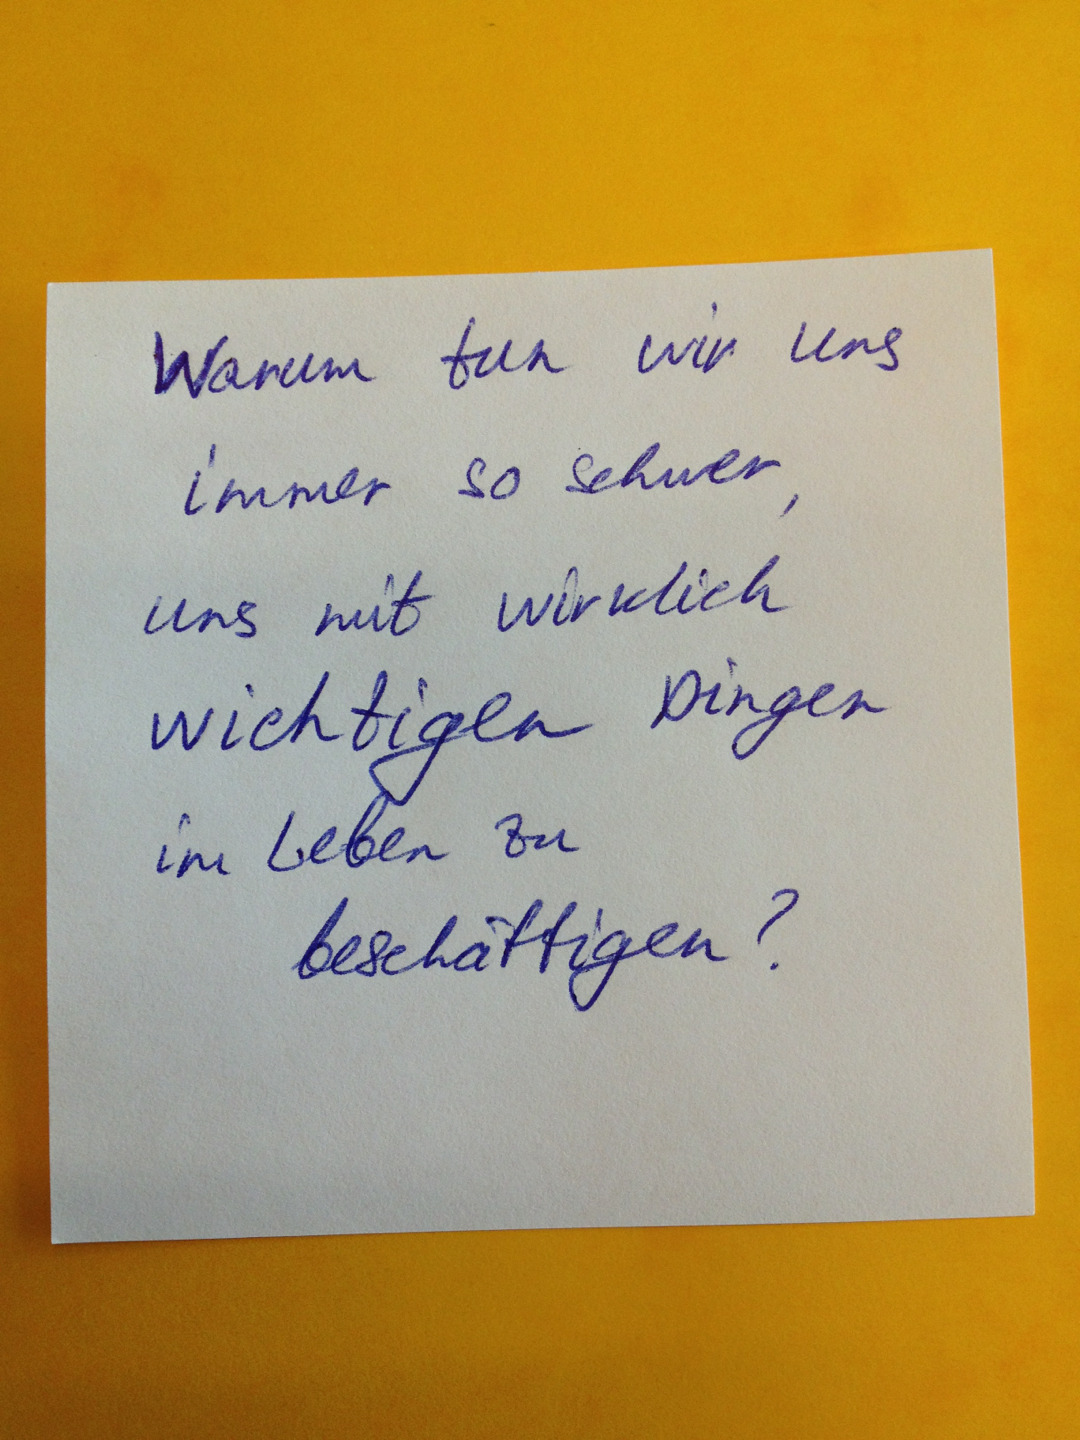 Warum tun wir uns
immer so schwer,
uns mit wirklich
wichtigen Dingen
im Leben zu
beschäftigen?